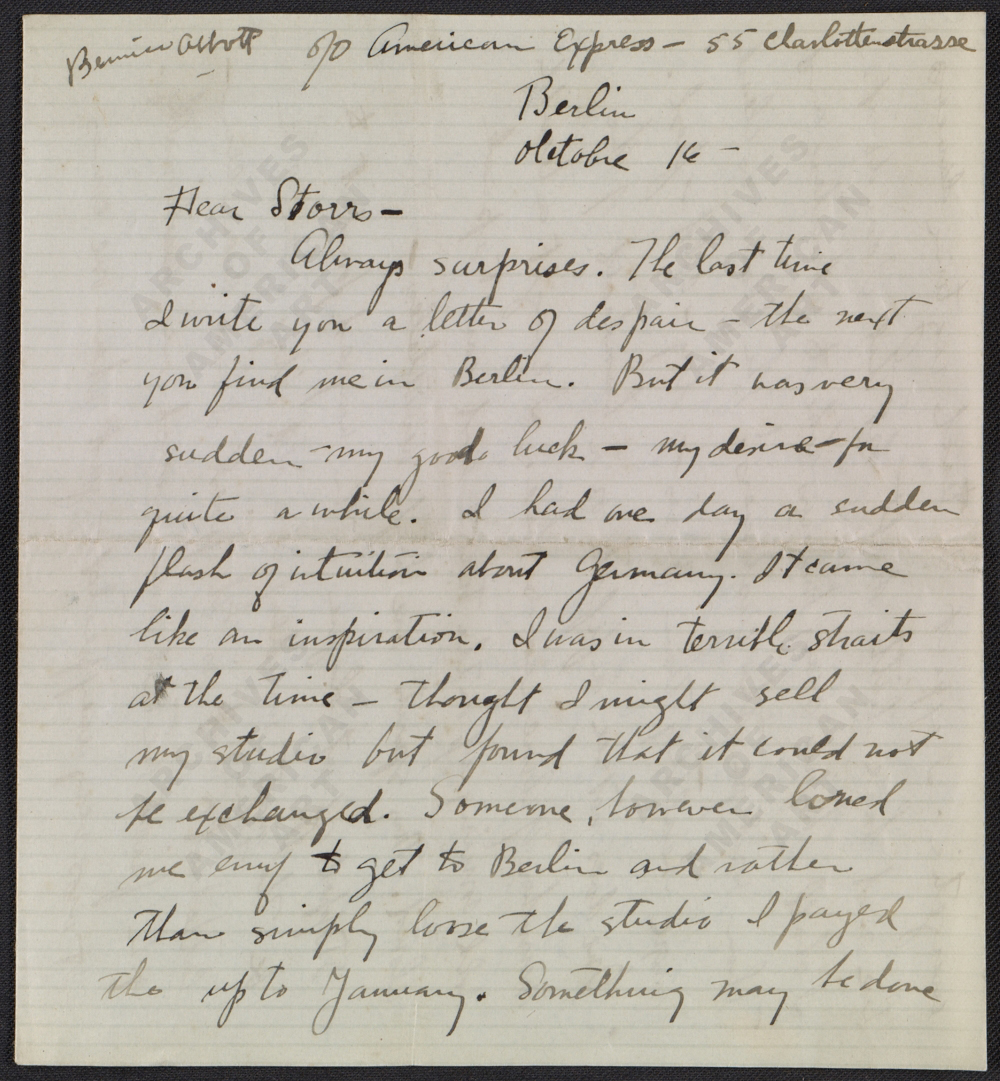 Bernice Abbott c/o American Express - 55 Charlottenstrasse
Berlin
Oktobre 16 -
Dear Storrs -
Always surprises. The last time
I write you a letter of despair - the next
you find me in Berlin. But it was very
sudden - my good luck - my desire - for
quite a while. I had one day a sudden
flash of intuition about Germany. It came
like an inspiration. I was in terrible straits
at the time - thought I might sell
my studio but found that it could not
be exchanged. Someone, however loned
me enuf to get to Berlin and rather
than simply loose the studio I payed
the up to January. Something may be done